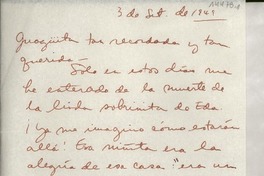 3 de Set. de 1949
Guagüita tan recordada y tan
querida —
Solo en estos días me
he enterado de la muerte de
la linda sobrinita de Eda
¡Ya me imagino cómo estarán
allá! Esa niñita era la
alegría de esa casa "era un